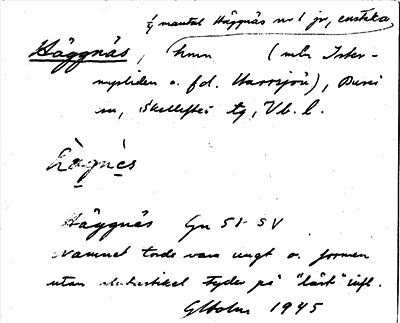 1/4 mantal Häggnäs nr 1 jr, enstaka
Häggnäs, hmn (mln Inter-
nyliden o. f.d. Harrsjön), Burs
sn, Skellefteå tg, Vb. l.
Häggnäs Gn 51 SV
Namnet torde vara ungt o. formen
utan slutartikel tyder på "lärt" infl.
GHolm 1945